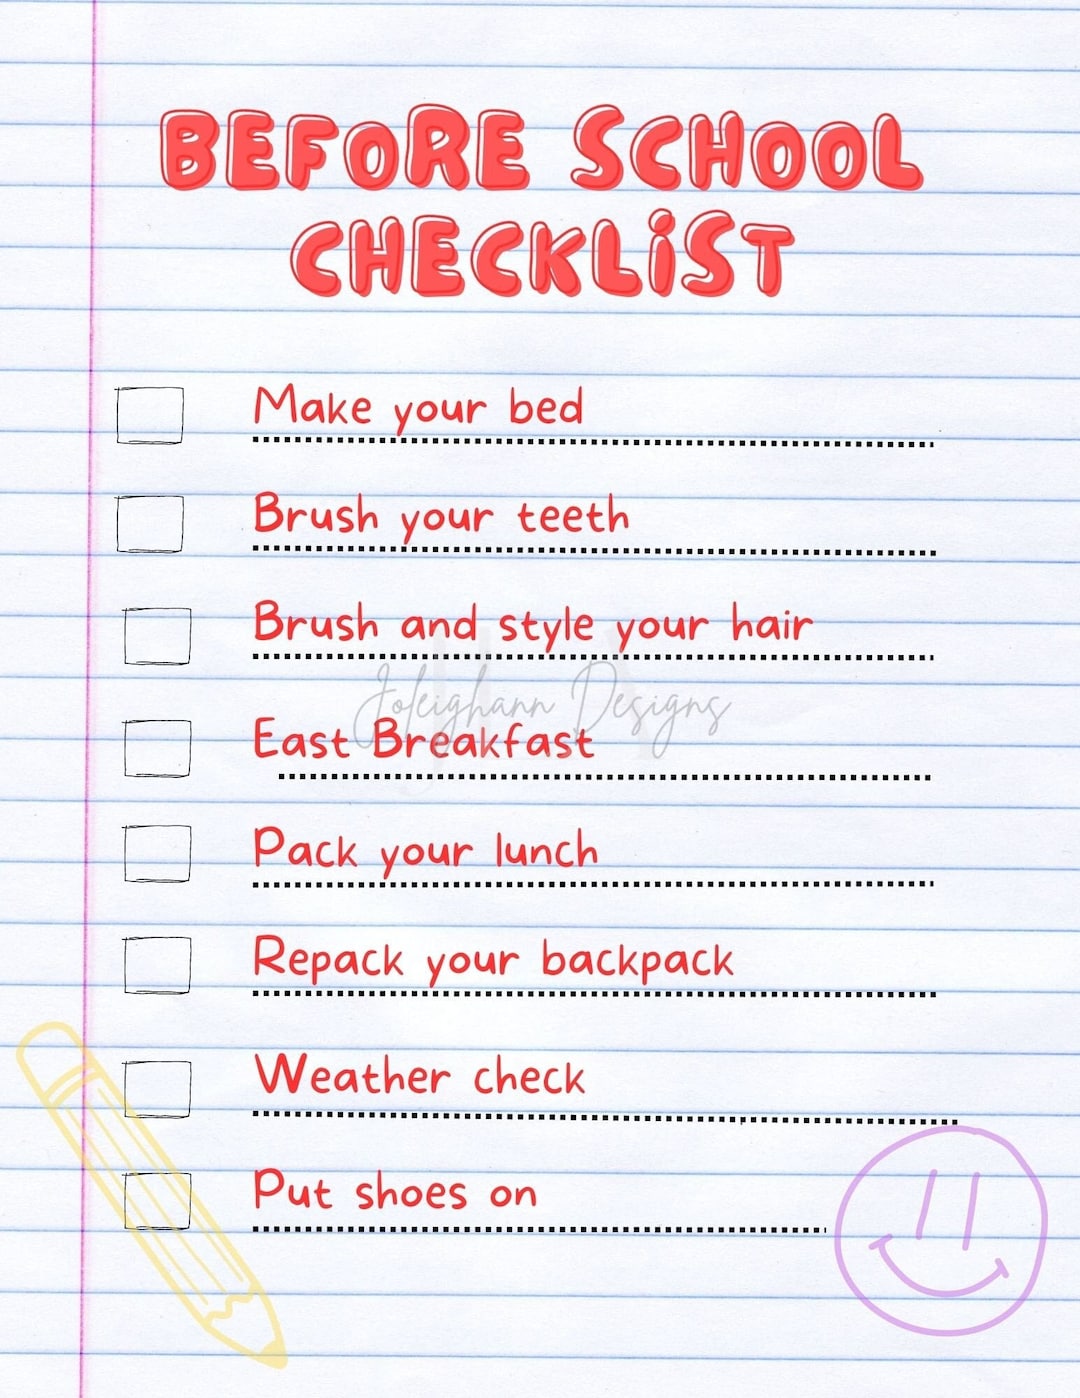 BEFORE SCHOOL
CHECKLIST
Make your bed
Brush your teeth
Brush and style your hair
Joleighann Designs
East Breakfast
Pack your lunch
Repack your backpack
Weather check
Put shoes on